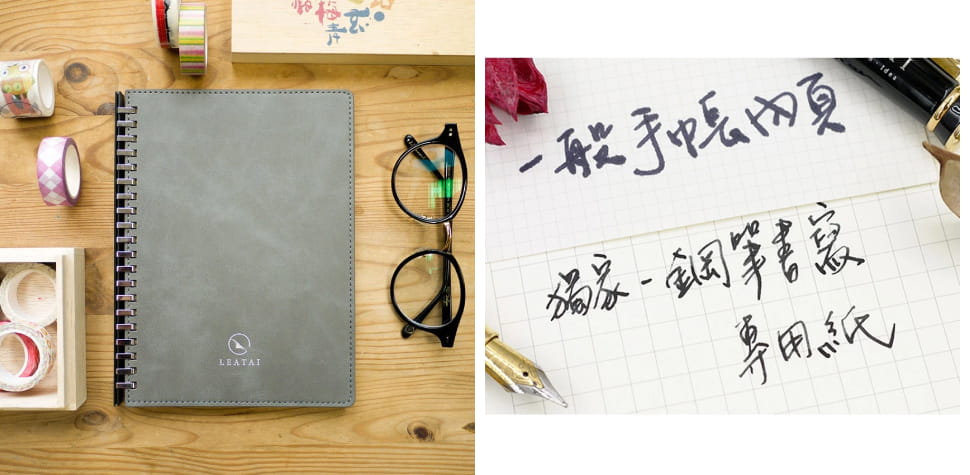 LEATAI
一般手帳內頁
獨家-鋼筆書寫
專用紙